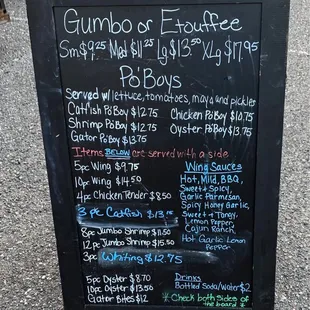 Gumbo or Etouffee
Sm $9.25 Med $11.25 Lg $13.50 XLg $17.95
Po'Boys
Served w/ lettuce, tomatoes, mayo and pickles
Catfish Po'Boy $12.75 Chicken Po'Boy $10.75
Shrimp Po'Boy $12.75 Oyster Po'Boy $13.75
Gator Po'Boy $13.75
Items BELOW are served with a side
5pc Wing $9.75
10pc Wing $14.50
4pc Chicken Tender $8.50
3 pc Catfish $13.75
8pc Jumbo Shrimp $11.50
12pc Jumbo Shrimp $15.50
3pc Whiting $12.75
5pc Oyster $8.70
10pc Oyster $13.50
Gator Bites $12
Wing Sauces
Hot, Mild, BBQ,
Sweet & Spicy,
Garlic Parmesan,
Spicy Honey Garlic,
Sweet & Tangy,
Lemon Pepper,
Cajun Ranch,
Hot Garlic Lemon
Pepper
Drinks
Bottled Soda/Water $2
* Check both sides of
the board *